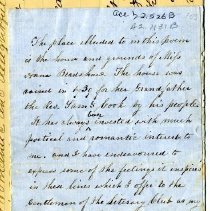 Acc
The place alluded to in this poem
is the house and grounds of Miss
Anna Bradshaw. The house was
raised in for her Grandfather
the Rev. Sam'l Cook by his people.
It has always been invested with much
poetical and romantic interest to
me, and I have endeavoured to
express some of the feelings it inspires
in these lines which I offer to the
Gentlemen of the Literary Club as my